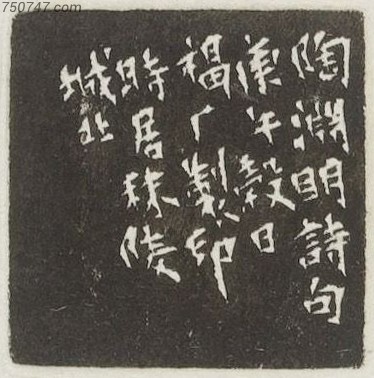 陶淵明詩句
庚午穀日
福厂製印
時居秣陵
城北
750747.com